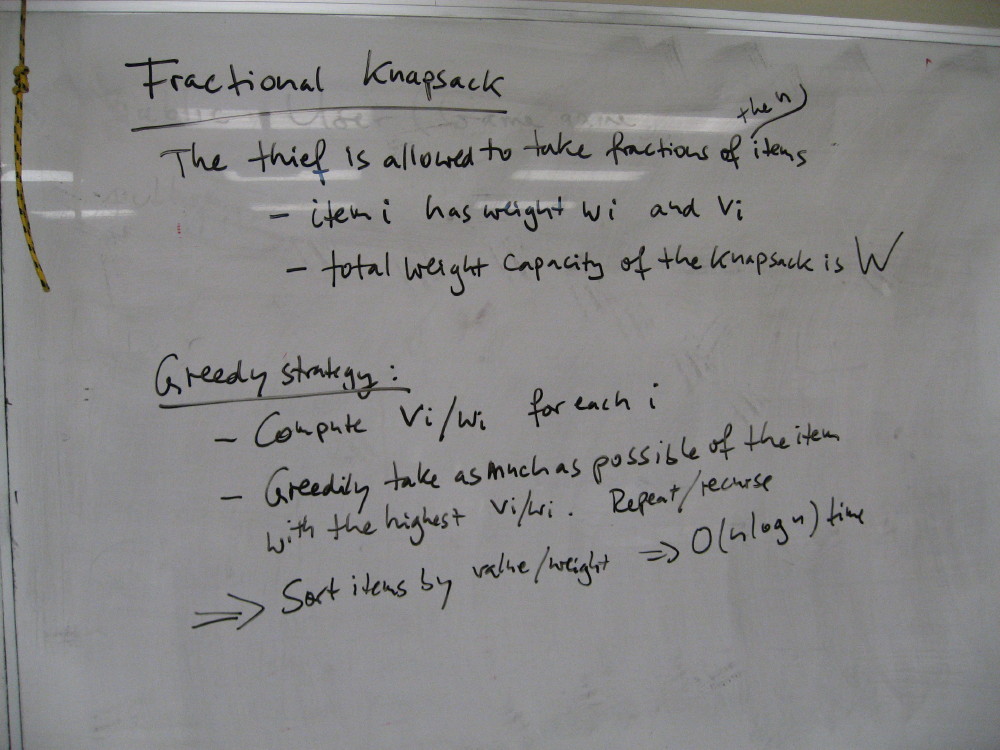 Fractional Knapsack
The thief is allowed to take fractions of the n items
- item i has weight wi and vi
- total weight capacity of the knapsack is W
Greedy strategy:
- Compute vi/wi for each i
- Greedily take as much as possible of the item
with the highest vi/wi. Repeat/recurse
⇒ Sort items by value/weight ⇒ O(n log n) time